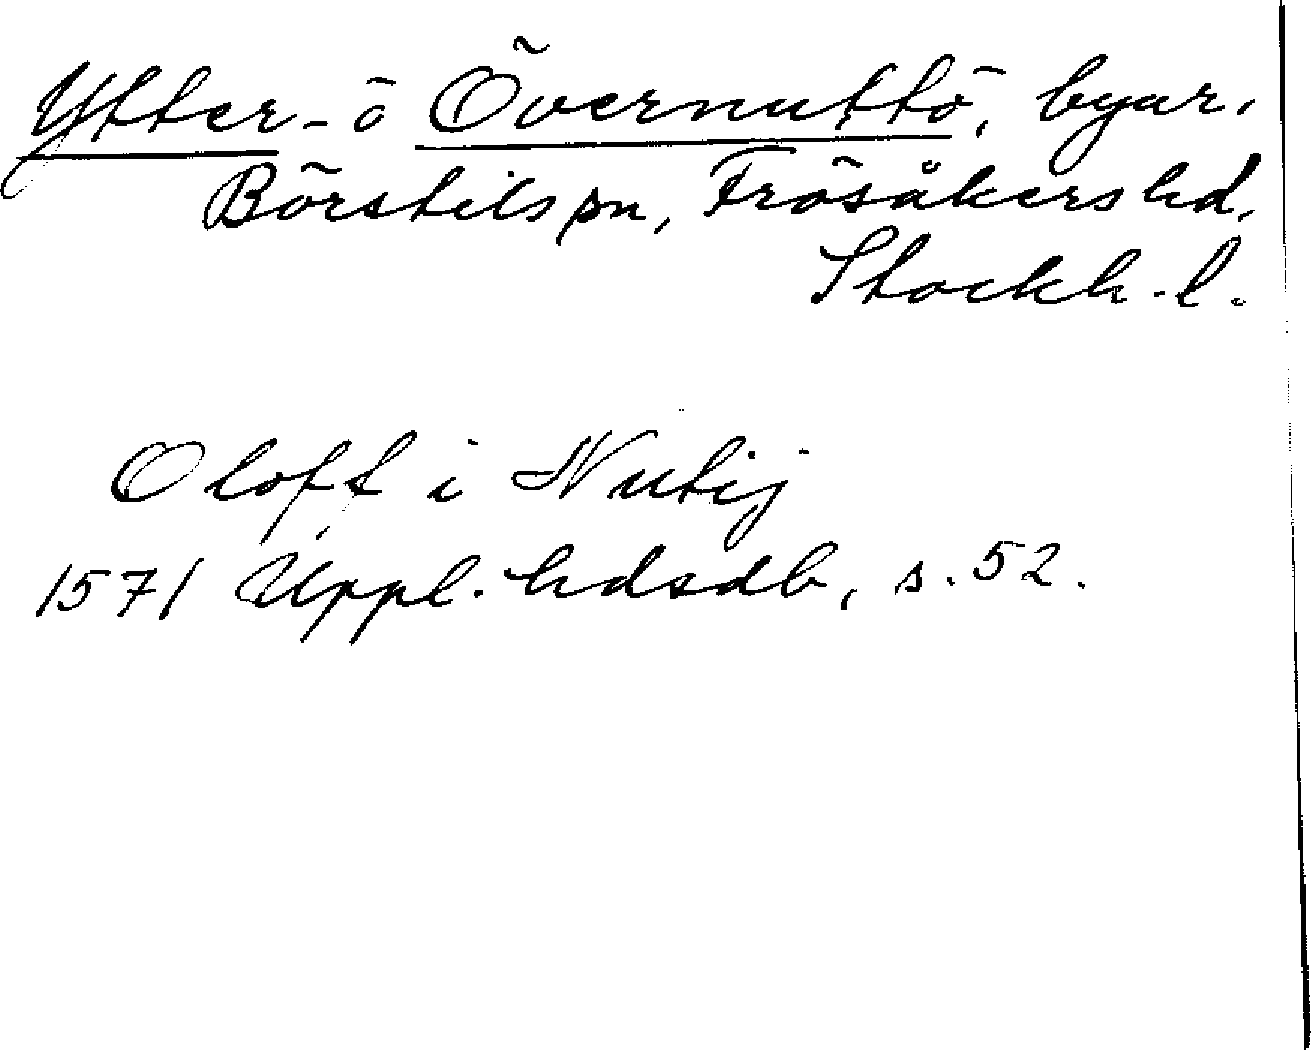 Ytter- ö Övernuttö, byar,
Börstils sn, Frösåkers hd,
Stockh. l.
Oloff i Nutij
1571 Uppl. hdsdb, s. 52.